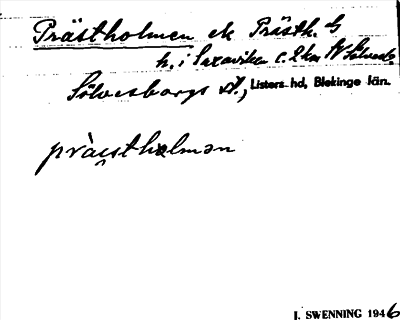 Prästholmen ek Prästh. G
h. i Saxavika c. 2 km N Sölvesb.
Sölvesborgs st., Listers hd, Blekinge län.
pràestholmen
I. SWENNING 1946